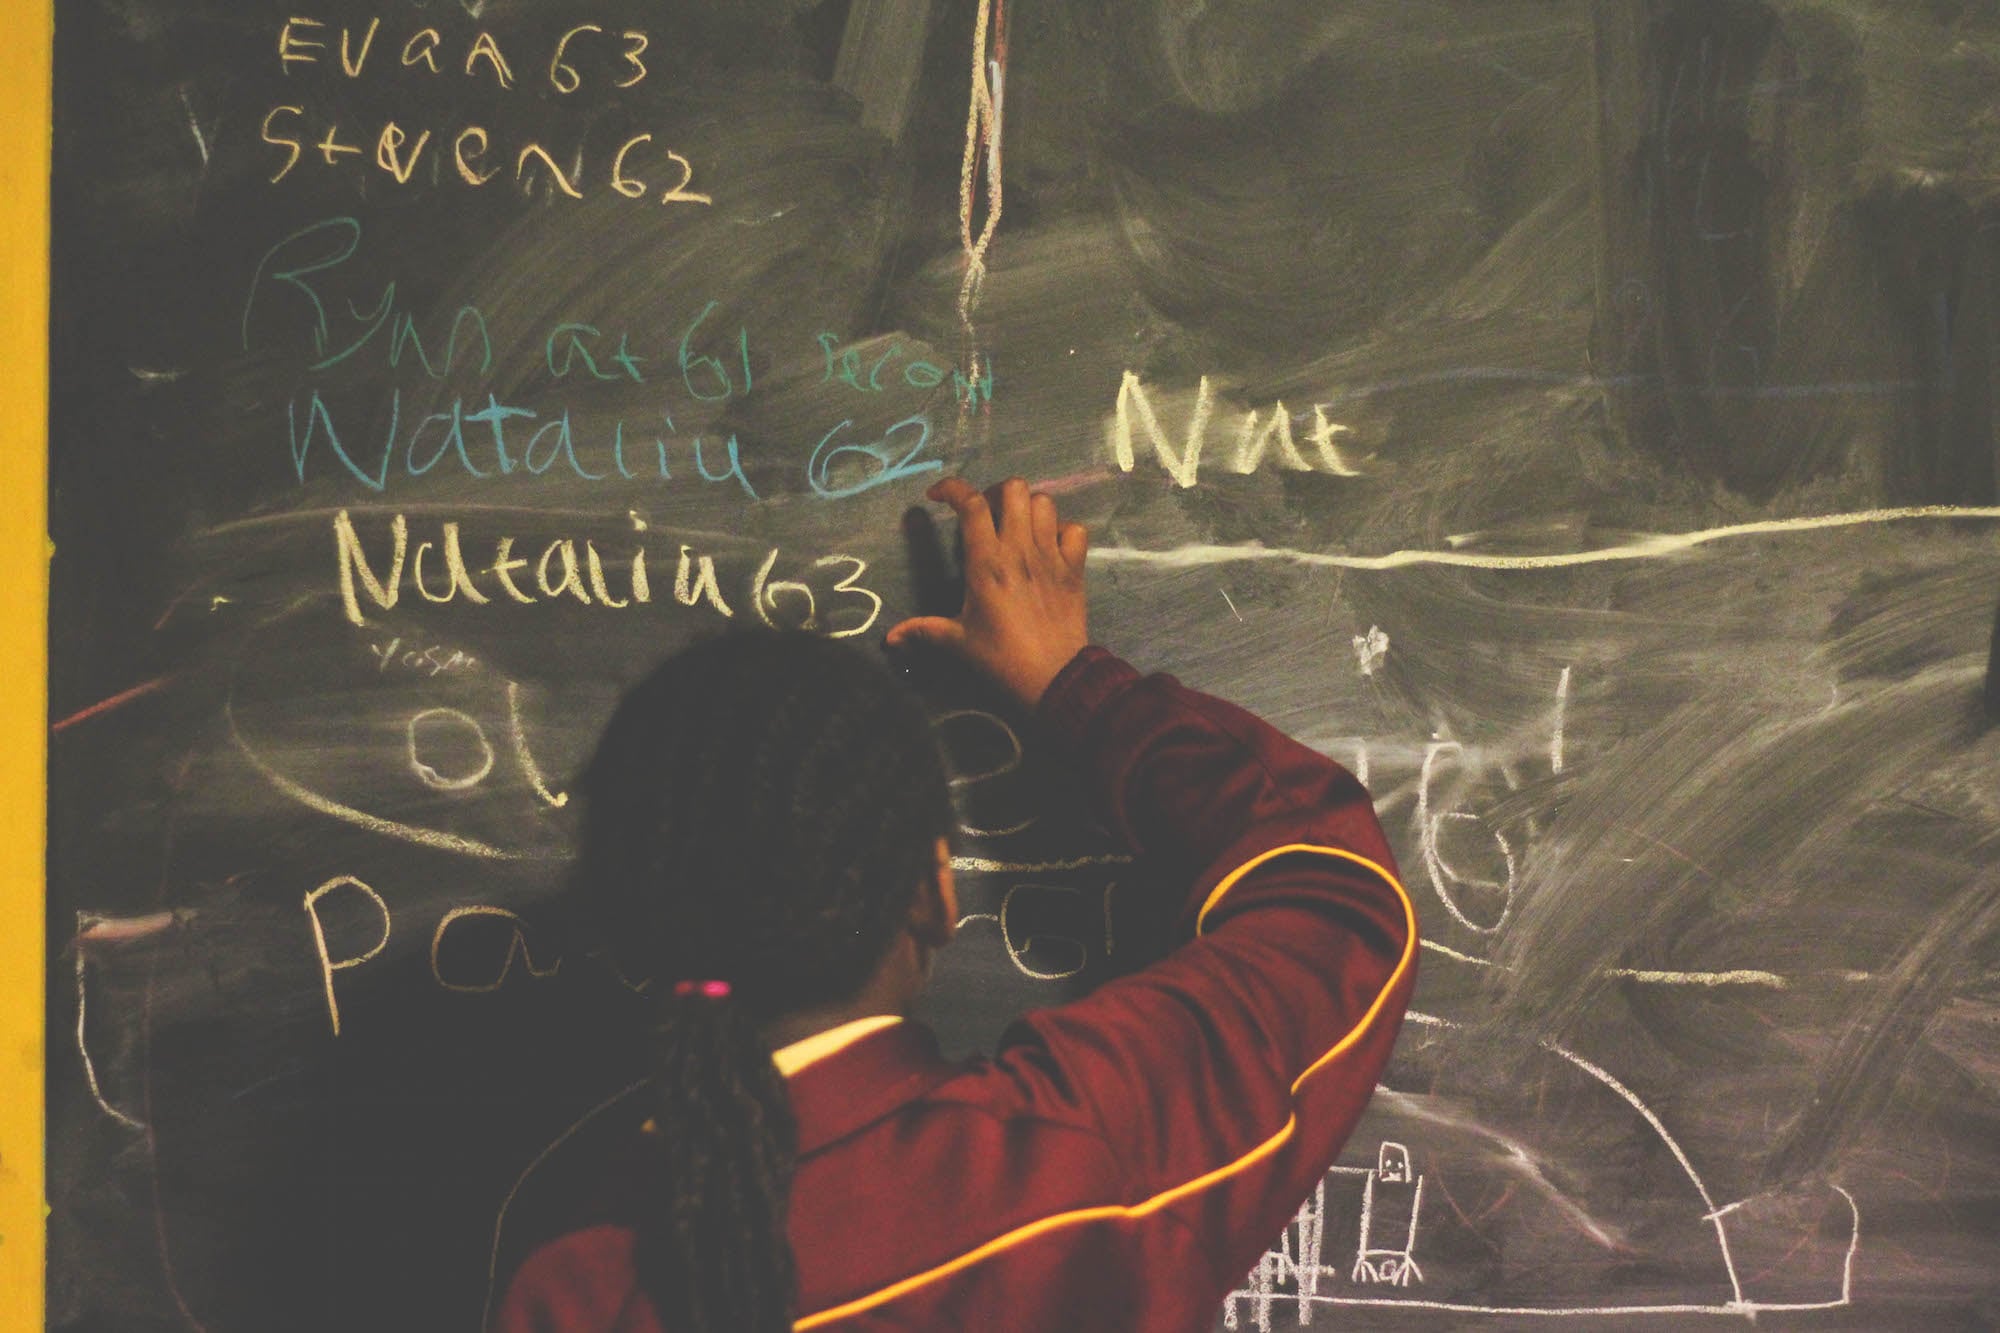 Evan 63
Steven 62
Ryan at 61 second
Natalia 62
Nat
Natalia 63
ol
Pa